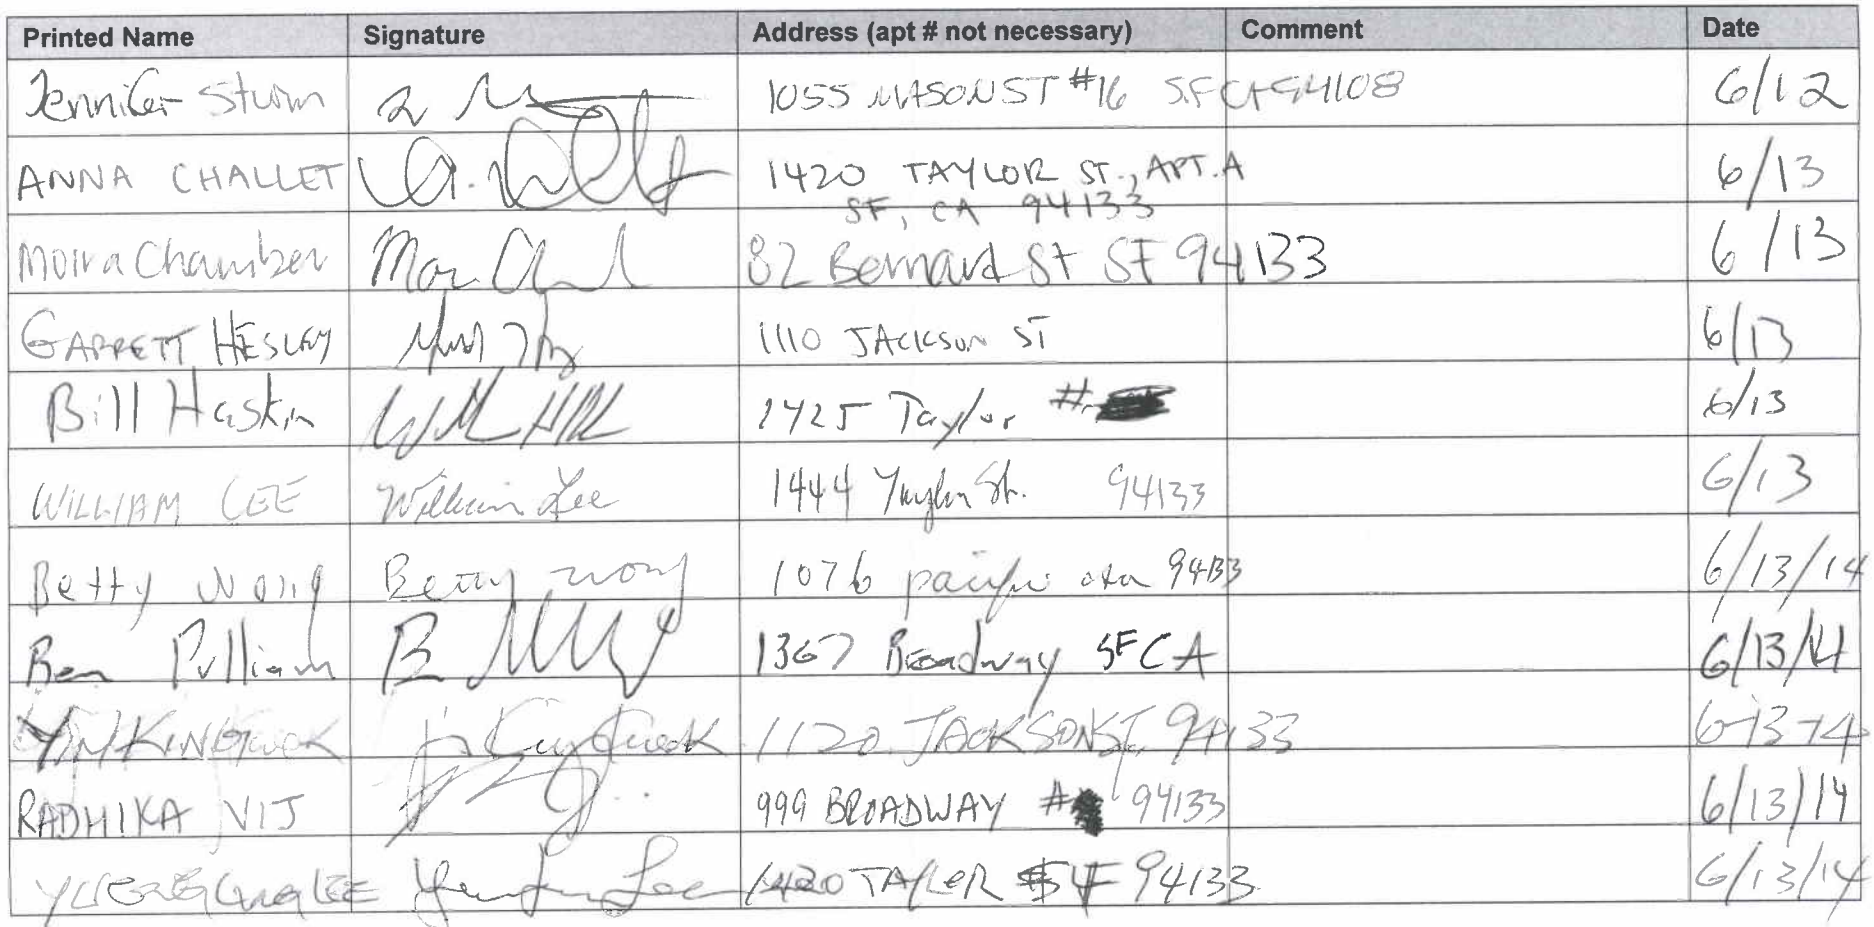 Printed Name Signature Address (apt # not necessary) Comment Date
Jennifer Sturm 1055 MASON ST #16 S.F CA 94108 6/12
ANNA CHALLET 1420 TAYLOR ST., APT. A 6/13
SF, CA 94133
Moira Chamber 82 Bernard St SF 94133 6/13
GARRETT HESLEY 1110 JACKSON ST 6/13
Bill Haskin 1425 Taylor # 6/13
WILLIAM LEE William Lee 1444 Taylor St. 94133 6/13
Betty Wong Betty Wong 1076 pacific 94133 6/13/14
Ben Pulliam 1367 Broadway SF CA 6/13/14
YIM KING 1120 JACKSON ST, 94133 6-13-14
RADHIKA VIJ 999 BROADWAY # 94133 6/13/14
LEE Lee 1420 TAYLER SF 94133 6/13/14